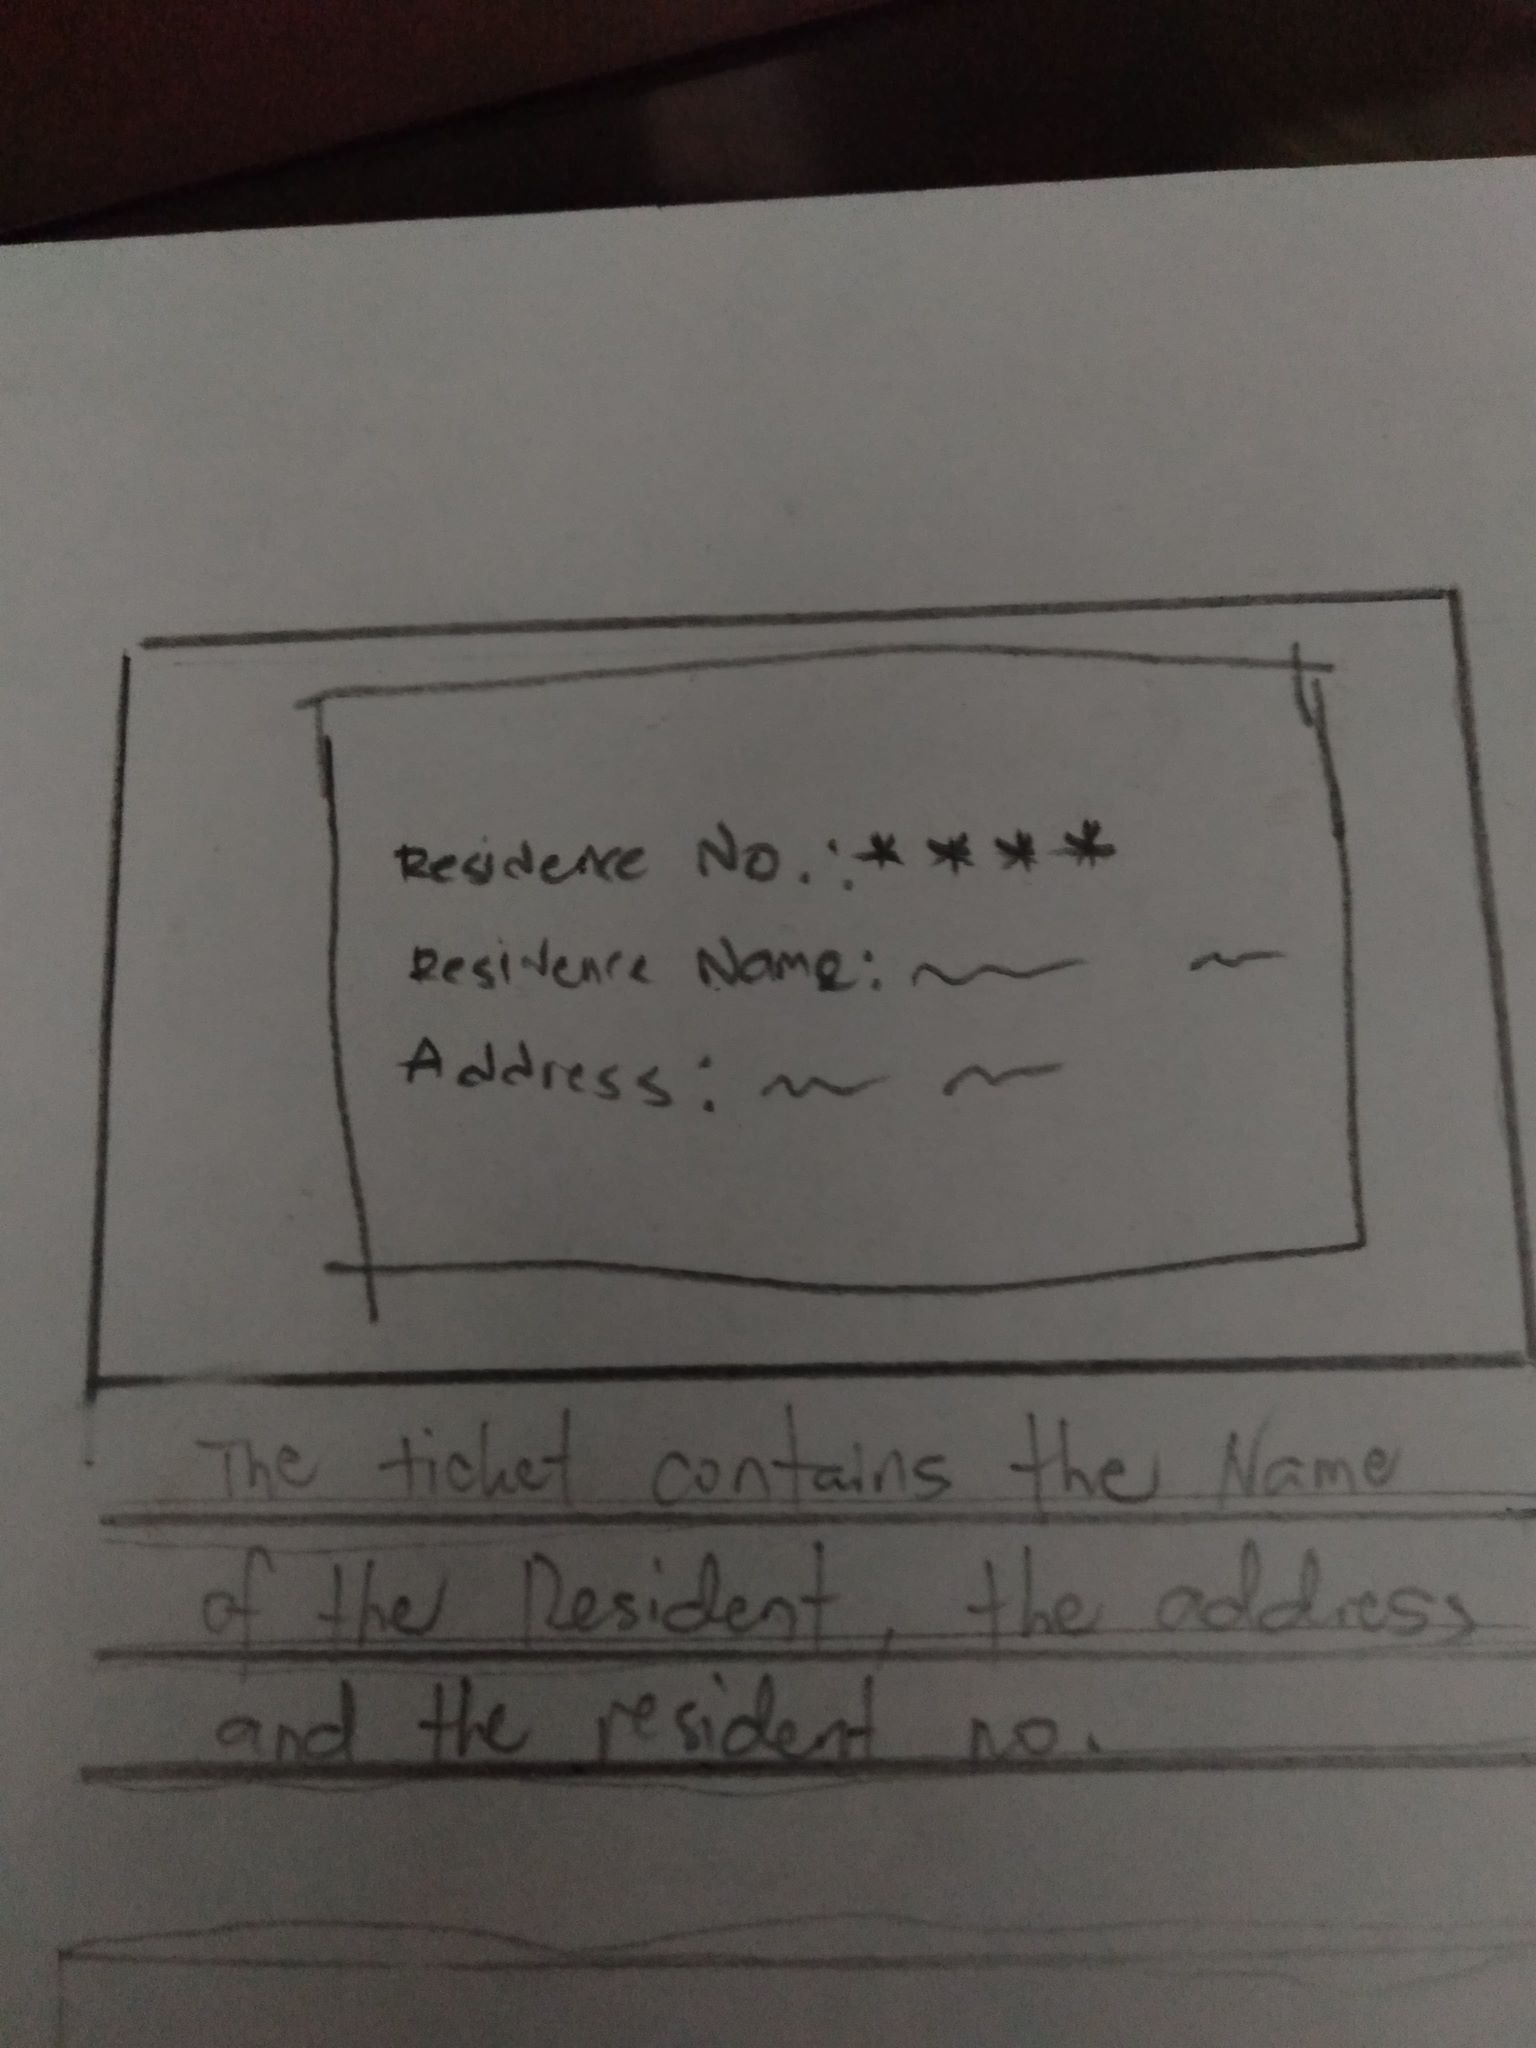 Residence No.: * * * *
Residence Name:
Address:
The ticket contains the Name
of the Resident, the address
and the resident no.